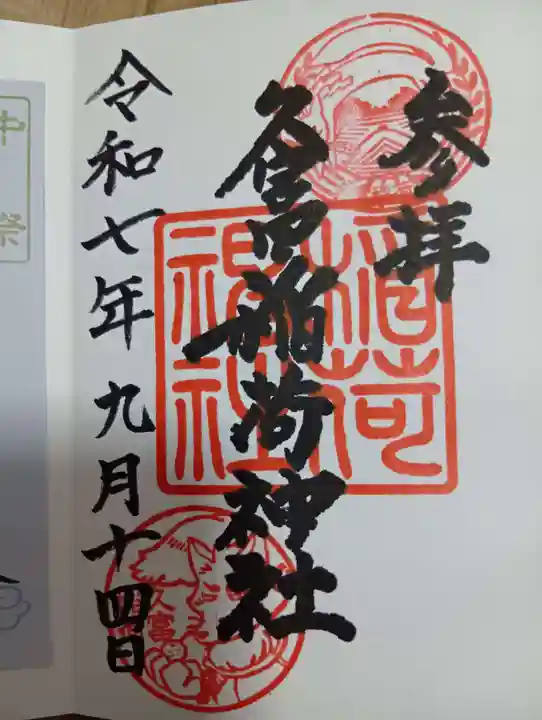 参拝
久富稲荷神社
令和七年九月十四日
稲荷
神社
久富
中
祭